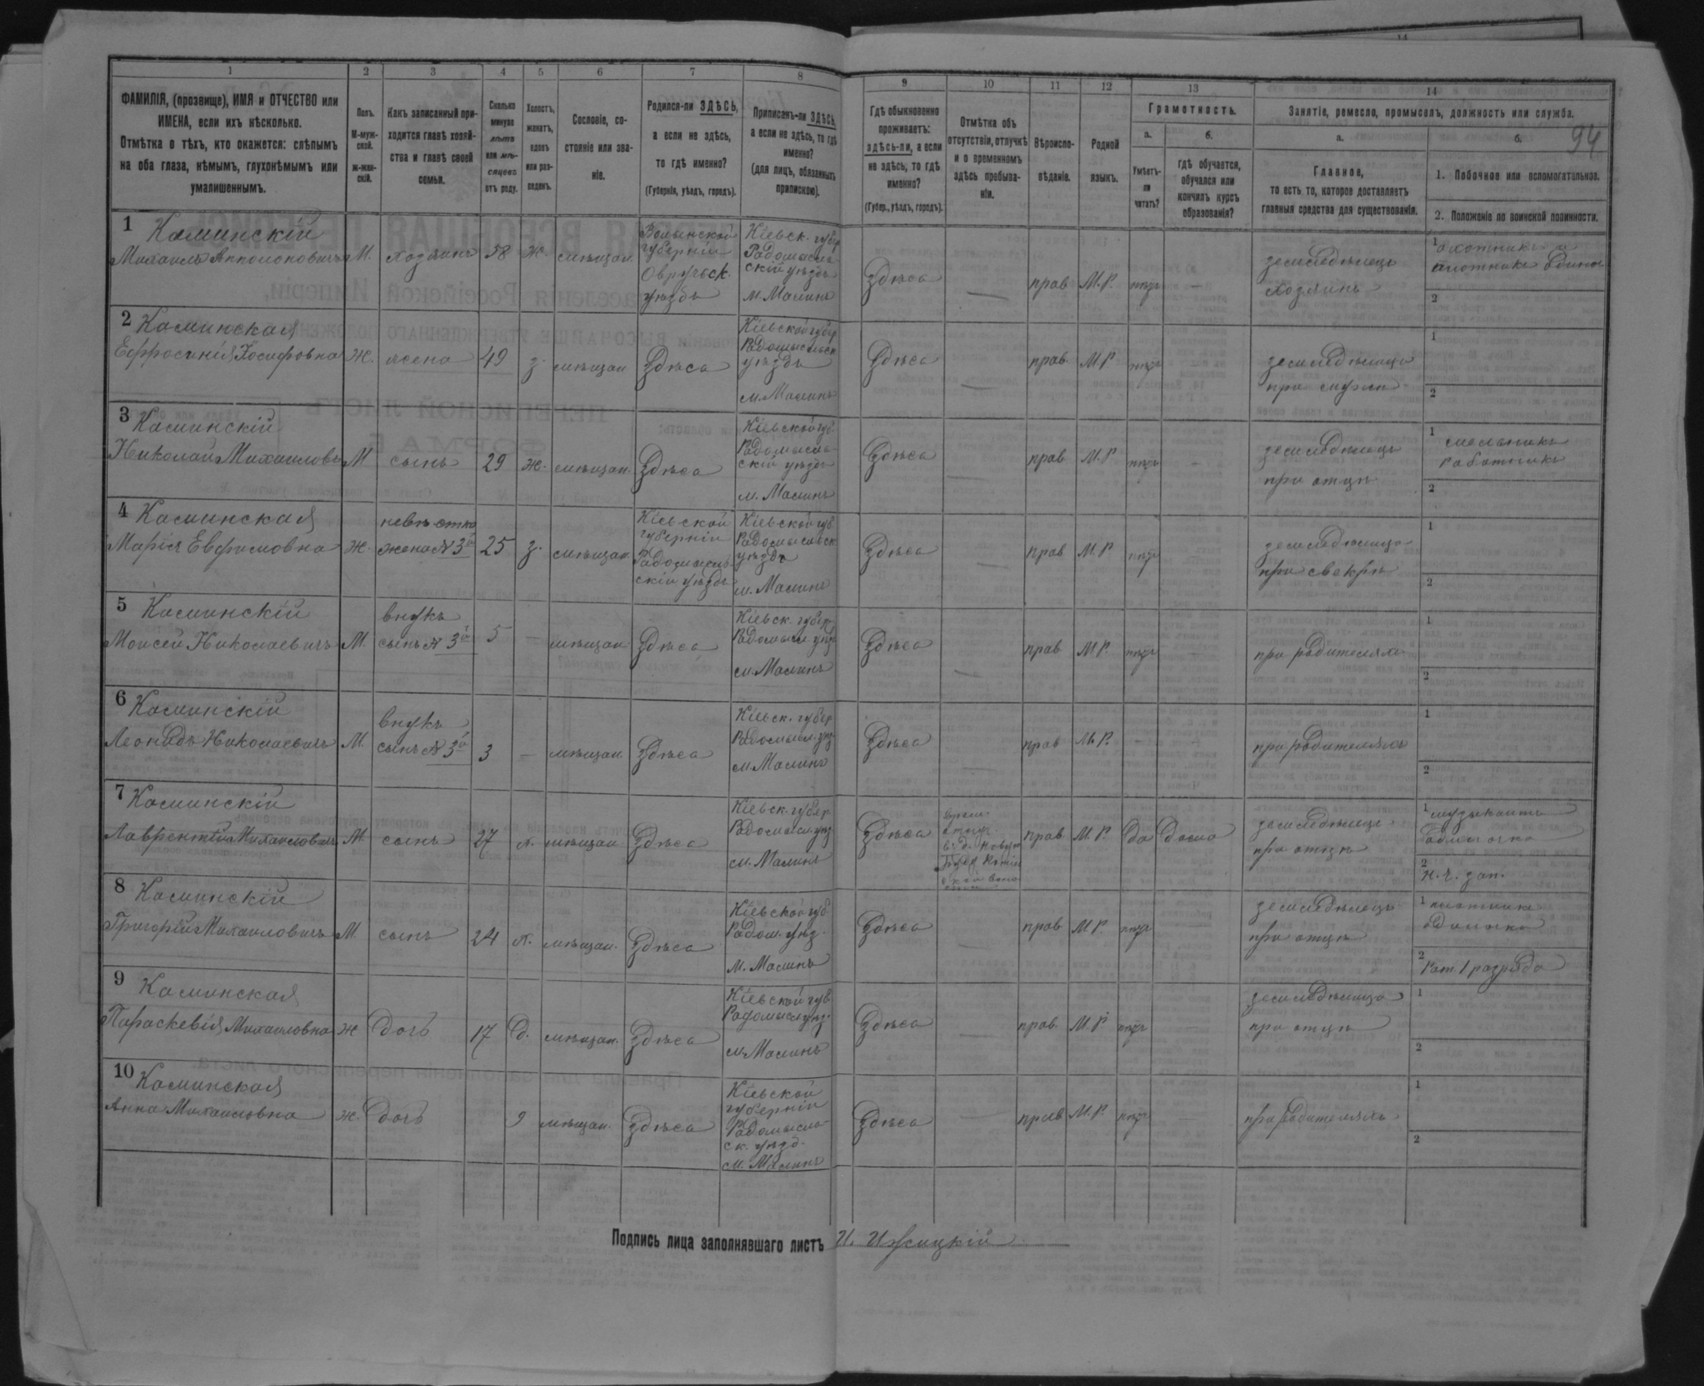 94
1
2
3
4
5
6
7
8
9
10
11
12
13
14
ФАМИЛІЯ, (прозвище), ИМЯ и ОТЧЕСТВО или
ИМЕНА, если ихъ нѣсколько.
Отмѣтка о тѣхъ, кто окажется: слѣпымъ
на оба глаза, нѣмымъ, глухонѣмымъ или
умалишеннымъ.
Полъ.
М-муж-
ской.
ж-жен-
скій.
Какъ записанный при-
ходится главѣ хозяй-
ства и главѣ своей
семьи.
Сколько
минуло
лѣтъ
или мѣ-
сяцевъ
отъ роду.
Холостъ,
женатъ,
вдовъ
или раз-
веденъ.
Сословіе, со-
стояніе или зва-
ніе.
Родился-ли ЗДѢСЬ,
а если не здѣсь,
то гдѣ именно?
(Губернія, уѣздъ, городъ).
Приписанъ-ли ЗДѢСЬ,
а если не здѣсь, то гдѣ
именно?
(для лицъ, обязанныхъ
припискою).
Гдѣ обыкновенно
проживаетъ:
здѣсь-ли, а если
не здѣсь, то гдѣ
именно?
(Губерн., уѣздъ, городъ).
Отмѣтка объ
отсутствіи, отлучкѣ
и о временномъ
здѣсь пребыва-
ніи.
Вѣроиспо-
вѣданіе.
Родной
языкъ.
Грамотность.
а.
Умѣетъ-
ли
читать?
б.
гдѣ обучается,
обучался или
кончилъ курсъ
образованія?
Занятіе, ремесло, промыселъ, должность или служба.
а.
Главное,
то есть то, которое доставляетъ
главныя средства для существованія.
б.
1. Побочное или вспомогательное.
2. Положеніе по воинской повинности.
1 Каминскій
Михаилъ Апполоновичъ М. хозяинъ 58 ж. мѣщан. Волынской
губерніи
Овручьск.
уѣздъ
Кіевск. губер
Радомысль
скій уѣздъ
м. Малинъ
Здѣсь — прав М.Р. нѣтъ — земледѣлецъ
хозяинъ
1
2
2 Каминская
Ефросинія Іосифовна ж. жена 49 з. мѣщан Здѣсь
Кіевской губер
Радомысльск
уѣздъ
м. Малинъ
Здѣсь — прав М.Р нѣтъ земледѣлица
при мужѣ
1
2
3 Каминскій
Николай Михайловъ М сынъ 29 ж. мѣщан. Здѣсь
Кіевской губ
Радомысль
скій уѣздъ
м. Малинъ
Здѣсь — прав М.Р нѣтъ — земледѣлецъ
при отцѣ
1 мельникъ
работникъ
2
4 Каминская
Марія Евфимовна ж. невѣстка
жена №3о 25 з. мѣщан
Кіевской
губерніи
Радомысль
скій уѣздъ
Кіевской губ
Радомысльск
уѣздъ
м. Малинъ
Здѣсь — прав М.Р нѣтъ земледѣлица
при свекрѣ
1
2
5 Каминскій
Моисей Николаевичъ М. внукъ
сынъ №3о 5 — мѣщан Здѣсь
Кіевск. губер
Радомысл. уѣз
м. Малинъ
Здѣсь — прав М.Р. нѣтъ — при родителяхъ
1
2
6 Каминскій
Леонидъ Николаевичъ М. внукъ
сынъ №3о 3 — мѣщан. Здѣсь
Кіевск. губер
Радомысл. уѣз
м. Малинъ
Здѣсь — прав М.Р. — — при родителяхъ
1
2
7 Каминскій
Лаврентій Михайловичъ М. сынъ 27 х. мѣщан Здѣсь
Кіевск. губер
Радомысл. уѣз
м. Малинъ
Здѣсь прав М.Р. да дома земледѣлецъ
при отцѣ
1 музыкантъ
2
8 Каминскій
Григорій Михайловичъ М. сынъ 24 х. мѣщан. Здѣсь
Кіевской губ
Радом. уѣзд.
м. Малинъ
Здѣсь — прав М.Р нѣтъ — земледѣлецъ
при отцѣ
1
2 Рат 1 разряда
9 Каминская
Параскевія Михайловна ж дочь 17 д. мѣщан. Здѣсь
Кіевской губ
Радомысл уѣзд.
м. Малинъ
Здѣсь — прав. М.Р нѣтъ — земледѣлица
при отцѣ
1
2
10 Каминская
Анна Михайловна ж. дочь 9 мѣщан. Здѣсь
Кіевской
губерніи
Радомысль
ск. уѣзд.
м. Малинъ
Здѣсь — прав М.Р. нѣтъ — при родителяхъ
1
2
Подпись лица заполнявшаго листъ И. Ижицкій